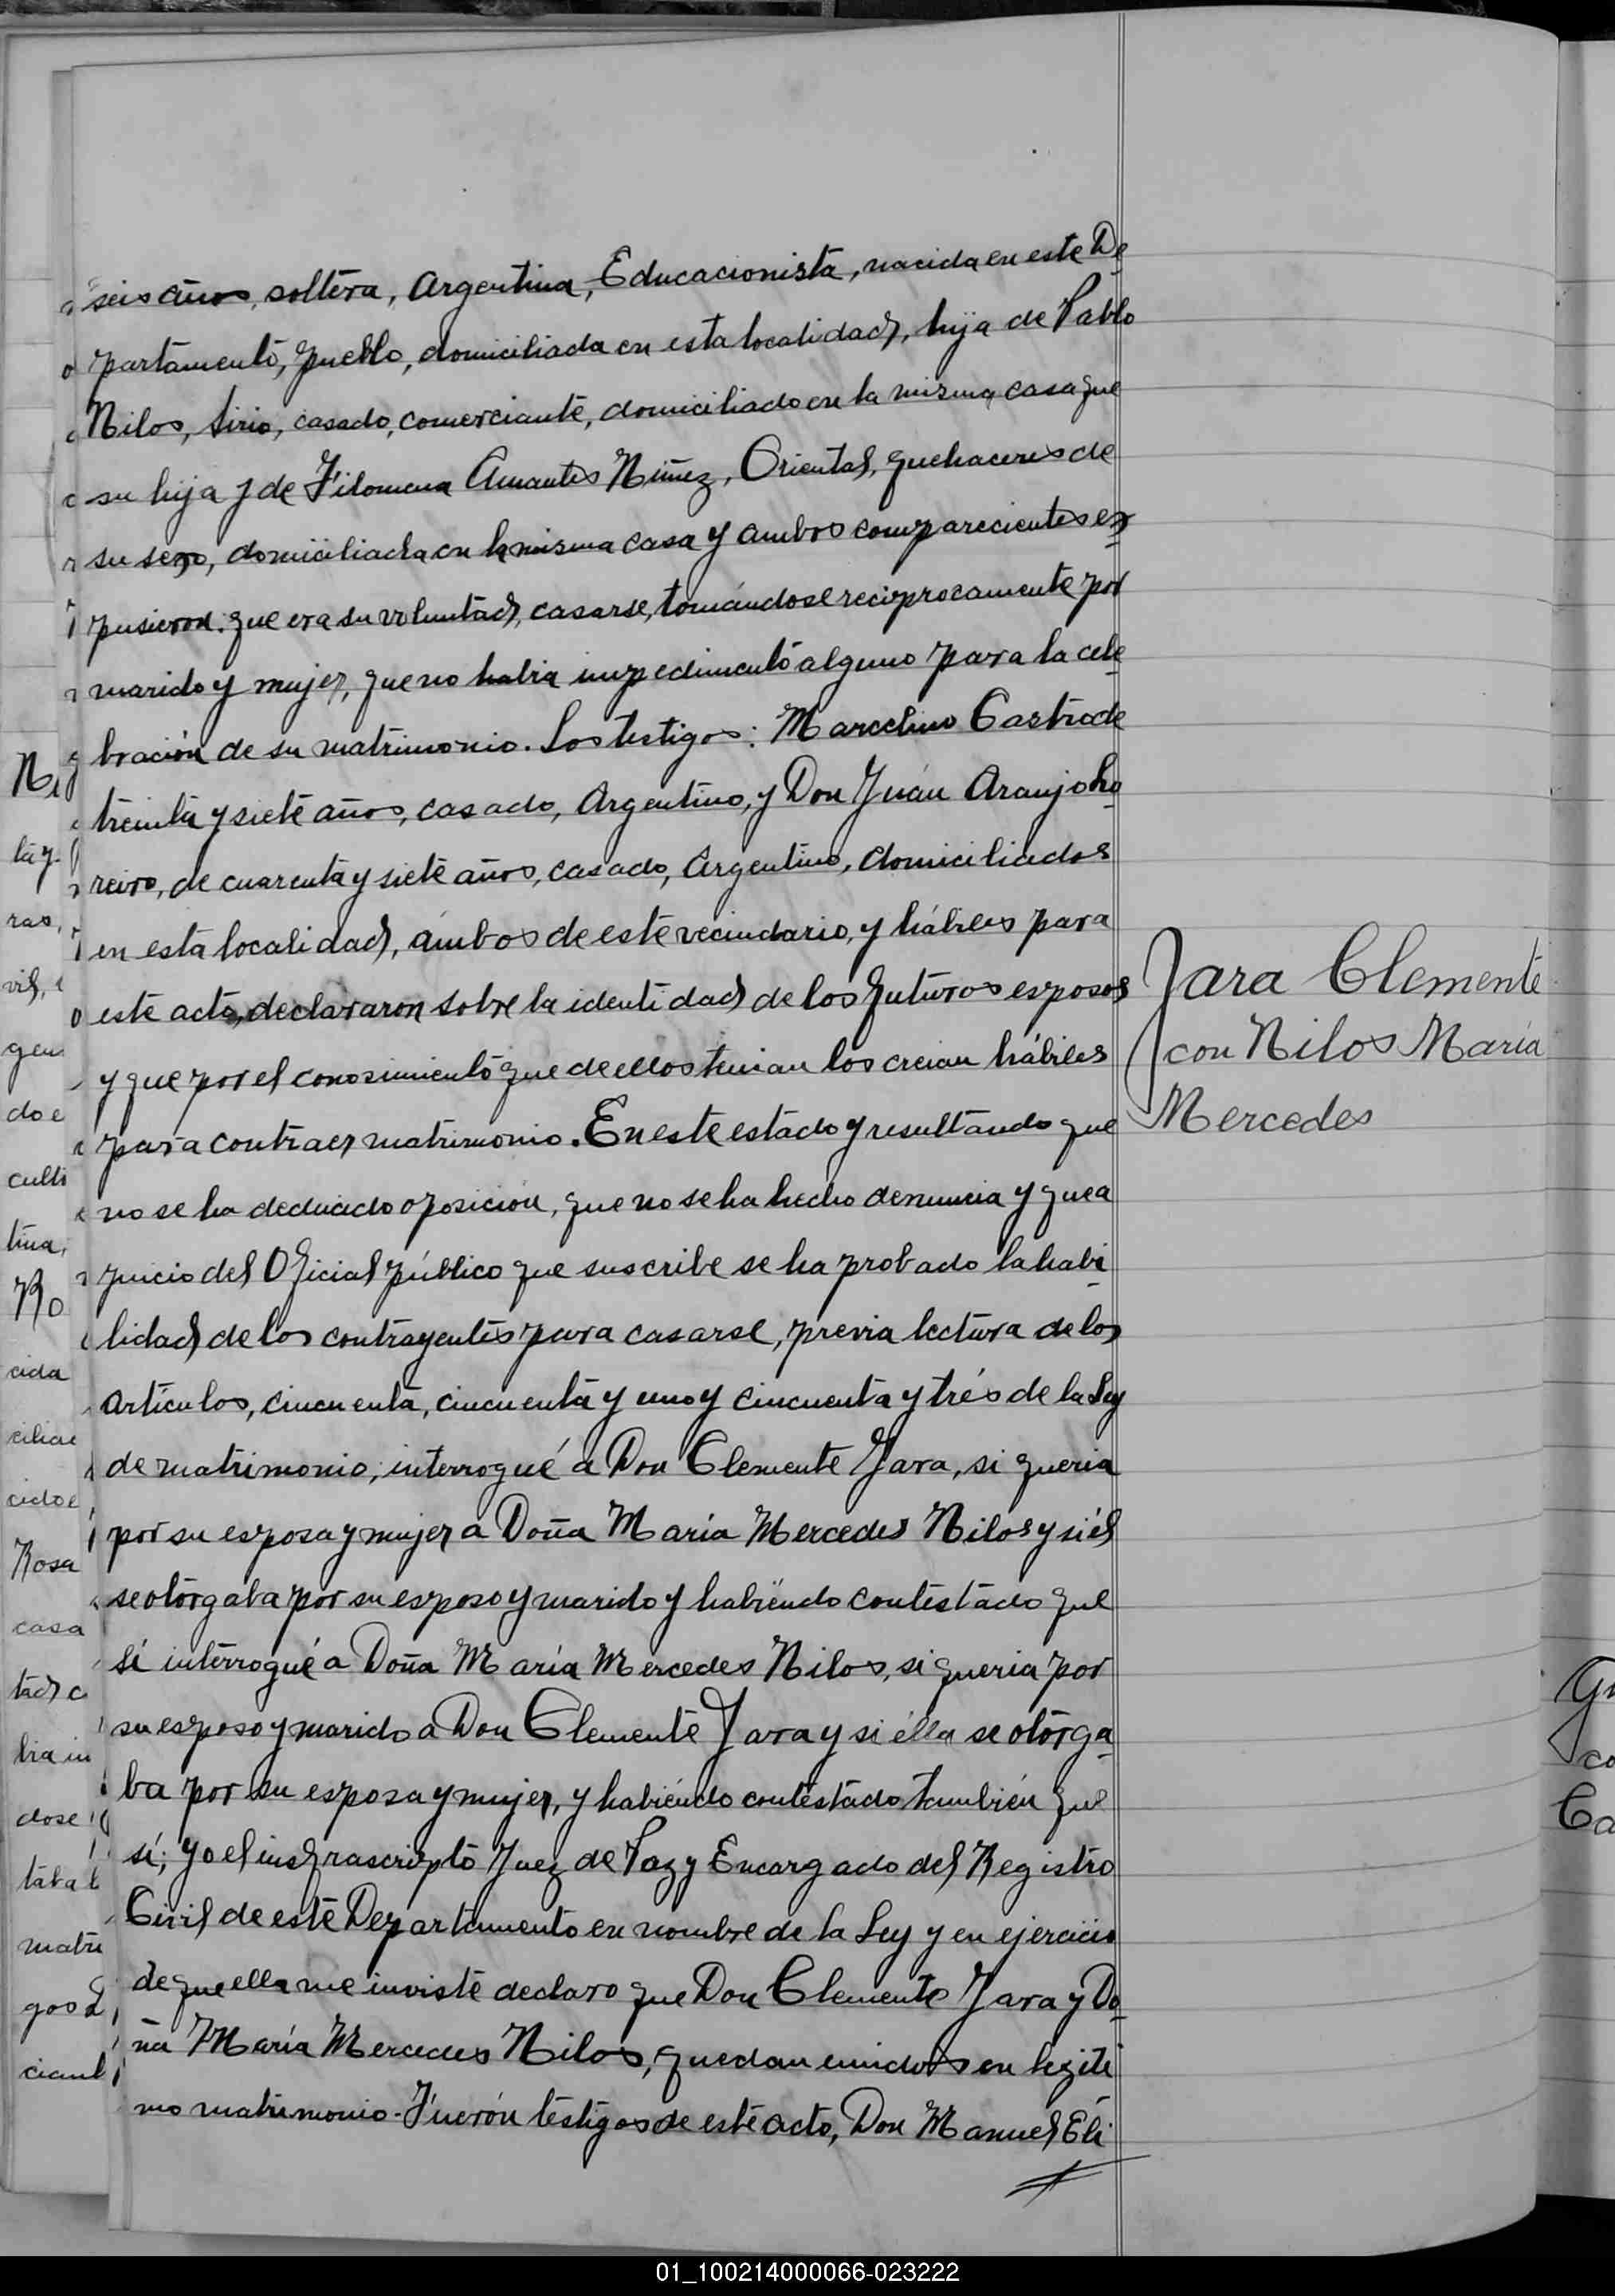 seis años, soltera, Argentina, Educacionista, nacida en este De
partamento, pueblo, domiciliada en esta localidad, hija de Pablo
Nilos, Sirio, casado, comerciante, domiciliado en la misma casa que
su hija y de Filomena Amantes Núñez, Oriental, quehaceres de
su sexo, domiciliada en la misma casa y ambos comparecientes ex
pusieron: que era su voluntad, casarse, tomándose reciprocamente por
marido y mujer, que no habia impedimento alguno para la cele
bración de su matrimonio. Los testigos: Marcelino Castro de
treinta y siete años, casado, Argentino, y Don Juán Araujo
reiro, de cuarenta y siete años, casado, Argentino, domiciliados
en esta localidad, ámbos de este vecindario, y hábiles para
este acto, declararon sobre la identidad de los futuros esposos
y que por el conosimiento que de ellos tenian los creian hábiles
para contraer matrimonio. En este estado y resultando que
no se ha deducido oposición, que no se ha hecho denuncia y que a
juicio del Oficial público que suscribe se ha probado la habi
lidad de los contrayentes para casarse, previa lectura de los
artículos, cincuenta, cincuenta y uno y cincuenta y trés de la Ley
de matrimonio, interrogué a Don Clemente Jara, si queria
por su esposa y mujer a Doña María Mercedes Nilos y si él
se otorgaba por su esposo y marido y habiendo contestado que
sí interrogué a Doña María Mercedes Nilos, si queria por
su esposo y marido a Don Clemente Jara y si élla se otorga
ba por su esposa y mujer, y habiéndo contestado también que
sí; yo el infrascripto Juez de Paz y Encargado del Registro
Civil de este Departamento en nombre de la Ley y en ejercicio
de que ella me inviste declaro que Don Clemente Jara y Do
ña María Mercedes Nilos, quedan unidos en legiti
mo matrimonio. Fuerón testigos de este acto, Don Manuel Eli
Jara Clemente
con Nilos María
Mercedes
01_100214000066-023222